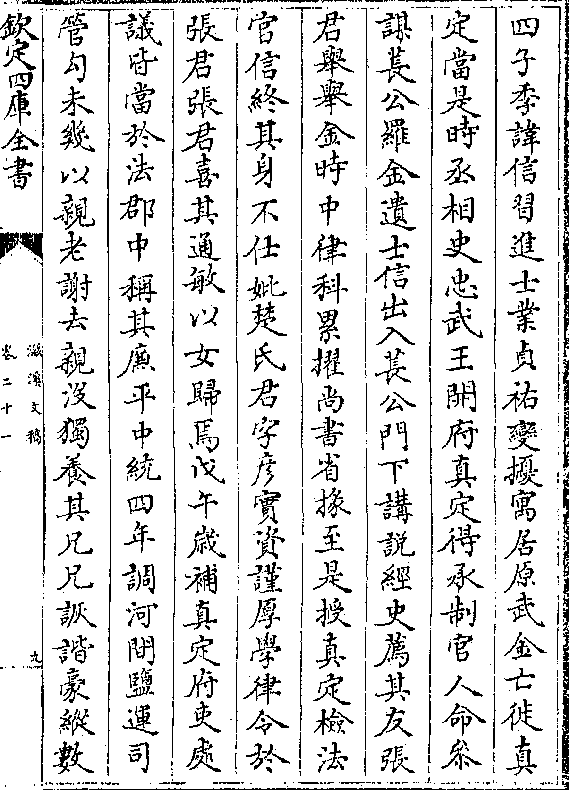 四子季諱信習進士業貞祐變擾寓居原武金亡徙真
定當是時丞相史忠武王開府真定得承制官人命參
謀萇公羅金遺士信出入萇公門下講説經史薦其友張
君舉舉金時中律科累擢尚書省掾至是授真定檢法
官信終其身不仕妣楚氏君字彦實資謹厚學律令於
張君張君喜其通敏以女歸焉戊午歳補真定府吏處
議皆當於法郡中稱其廉平中統四年調河間鹽運司
管勾未幾以親老謝去親沒獨養其兄兄詼諧豪縱數
欽定四庫全書
滋溪文稿
卷二十一
九